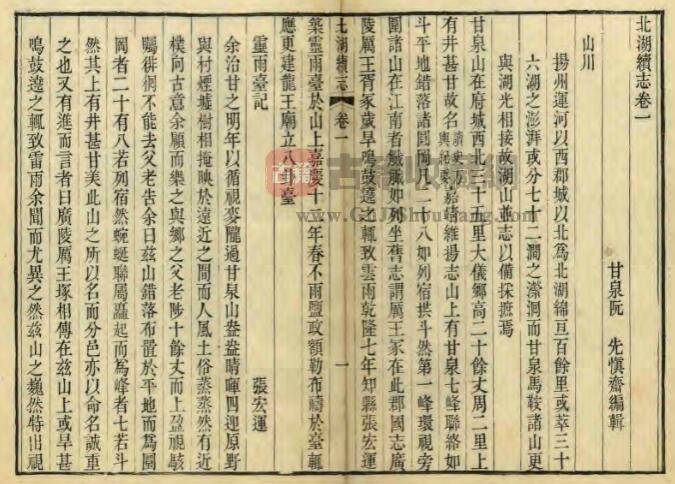 北湖續志卷一
甘泉阮　先慎齋編輯
山川
揚州運河以西郡城以北為北湖綿亘百餘里或萃三十
六湖之澎湃或分七十二澗之瀠洄而甘泉馬鞍諸山更
與湖光相接故湖山並志以備採摭焉
甘泉山在府城西北三十五里大儀鄉高二十餘丈周二里上
有井甚甘故名嘉靖維揚志山上有甘泉七峰聯絡如
斗平地錯落諸圓岡凡二十八如列宿拱斗然第一峰環視旁
圍諸山在江南者歷歷如列坐舊志謂厲王冢在此郡國志廣
陵厲王胥冢歲旱鳴鼓遶之輒致雲雨乾隆七年知縣張宏運
築靈雨臺於山上嘉慶十年春不雨鹽政額勒布禱於臺輒
應更建龍王廟立八卦臺
靈雨臺記
張宏運
余治甘之明年以循視麥隴過甘泉山盎盎晴暉四迎原野
與村煙墟樹相掩映於遠近之間而人風土俗蒸蒸然有近
樸向古意余顧而樂之與鄉之父老陟十餘丈而上盈視駭
矚徘徊不能去父老告余曰茲山錯落布置於平地而為圓
岡者二十有八若列宿然蜿蜒聯屬矗起而為峰者七若斗
然其上有井甚甘美此山之所以名而分邑亦以命名誠重
之也又有進而言者曰廣陵厲王塚相傳在茲山上或旱甚
鳴鼓遶之輒致雷雨余聞而尤異之然茲山之巍然特出視
北湖續志
卷一
一
古籍收藏
www.GJShuGang.COM